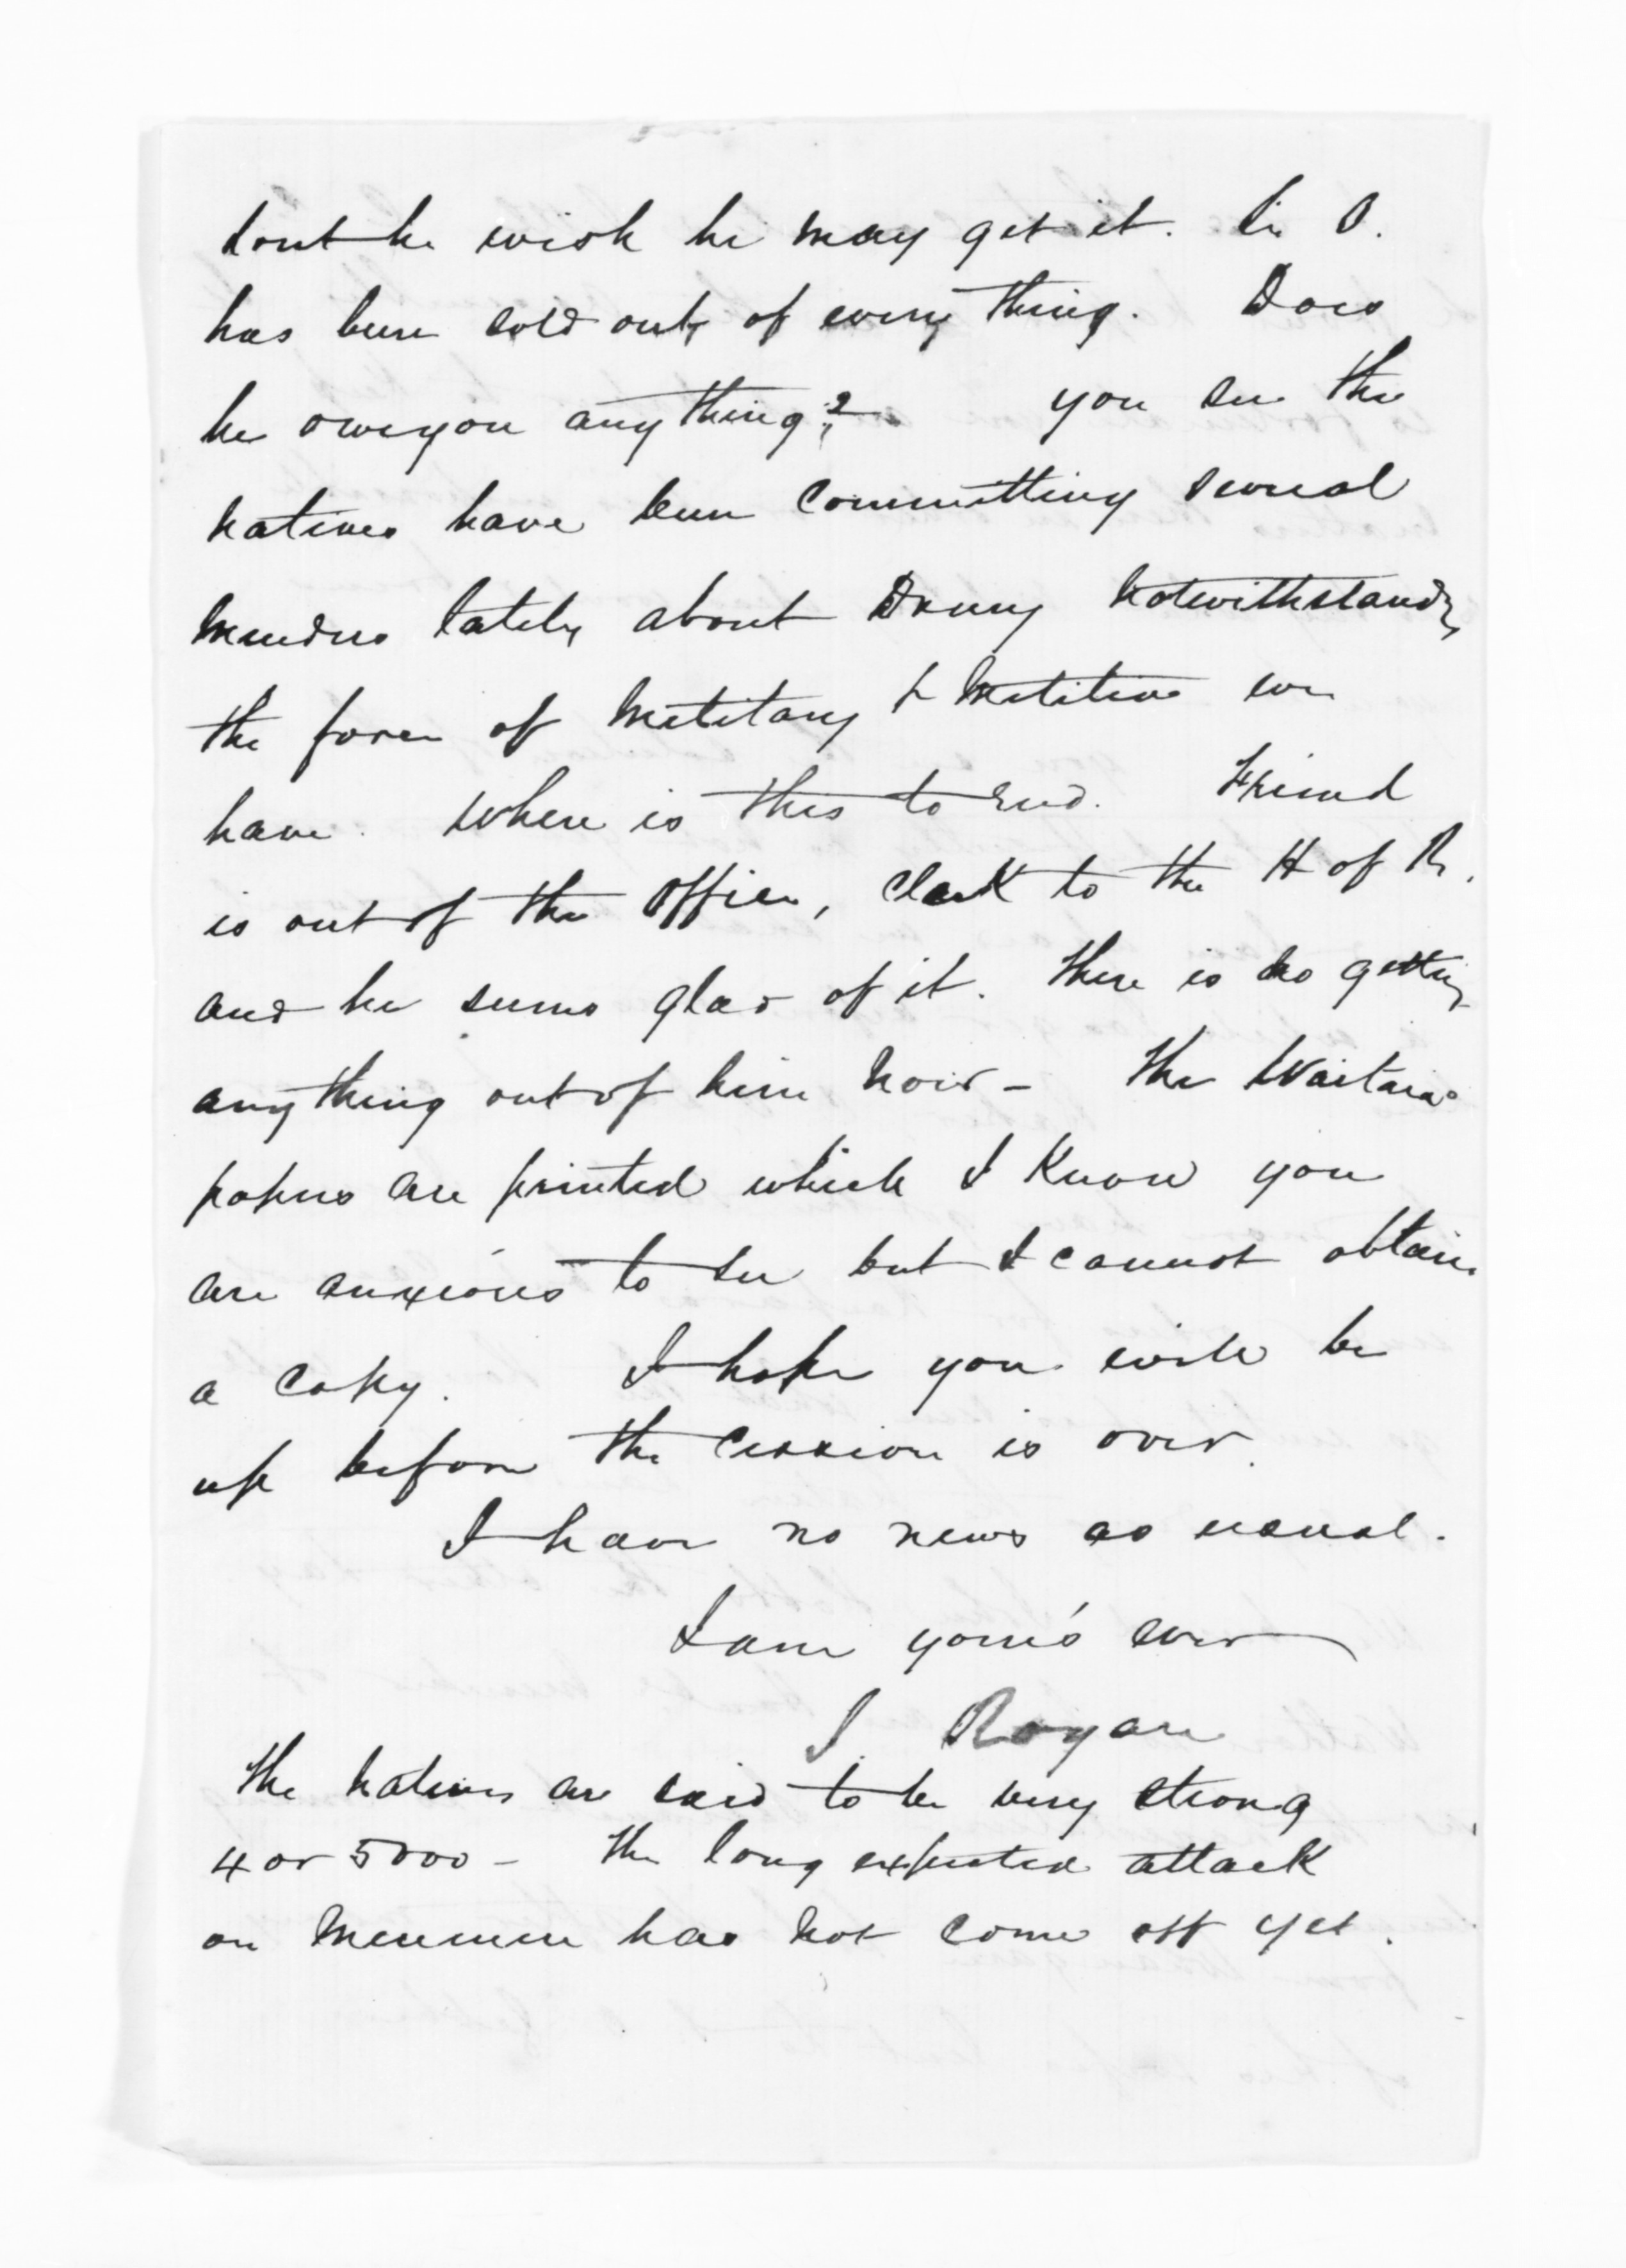 dont he wish he may get it. Sir O.
has been sold out of every thing. Does
he owe you any thing? you see the
natives have been committing several
murders lately about Drury notwithstandg
the force of Military & Militia we
have. Where is this to end. Friend
is out of the Office, Clerk to the H of R.
and he seems glad of it. There is no getting
any thing out of him now - The Waitara
papers are printed which I know you
are anxious to see but I cannot obtain
a copy. I hope you will be
up before the Cession is over.
I have no news as usual.
I am your's ever
J. Rogan
The natives are said to be very strong
4 or 5000 - The long expected attack
on Meremere has not come off yet.